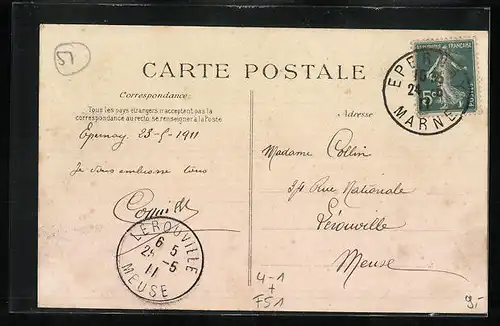 51
CARTE POSTALE
Correspondance:
Tous les pays étrangers n'acceptent pas la
correspondance au recto. se renseigner à la Poste
Epernay 23-5-1911
Je vous embrasse tous
LEROUVILLE
6 5
25 -5
11
MEUSE
Adresse
Madame Collin
34 Rue Nationale
Lérouville
Meuse
EPER
MARNE
REPUBLIQUE FRANÇAISE
5
POSTES
4-1
+
F51
9.-